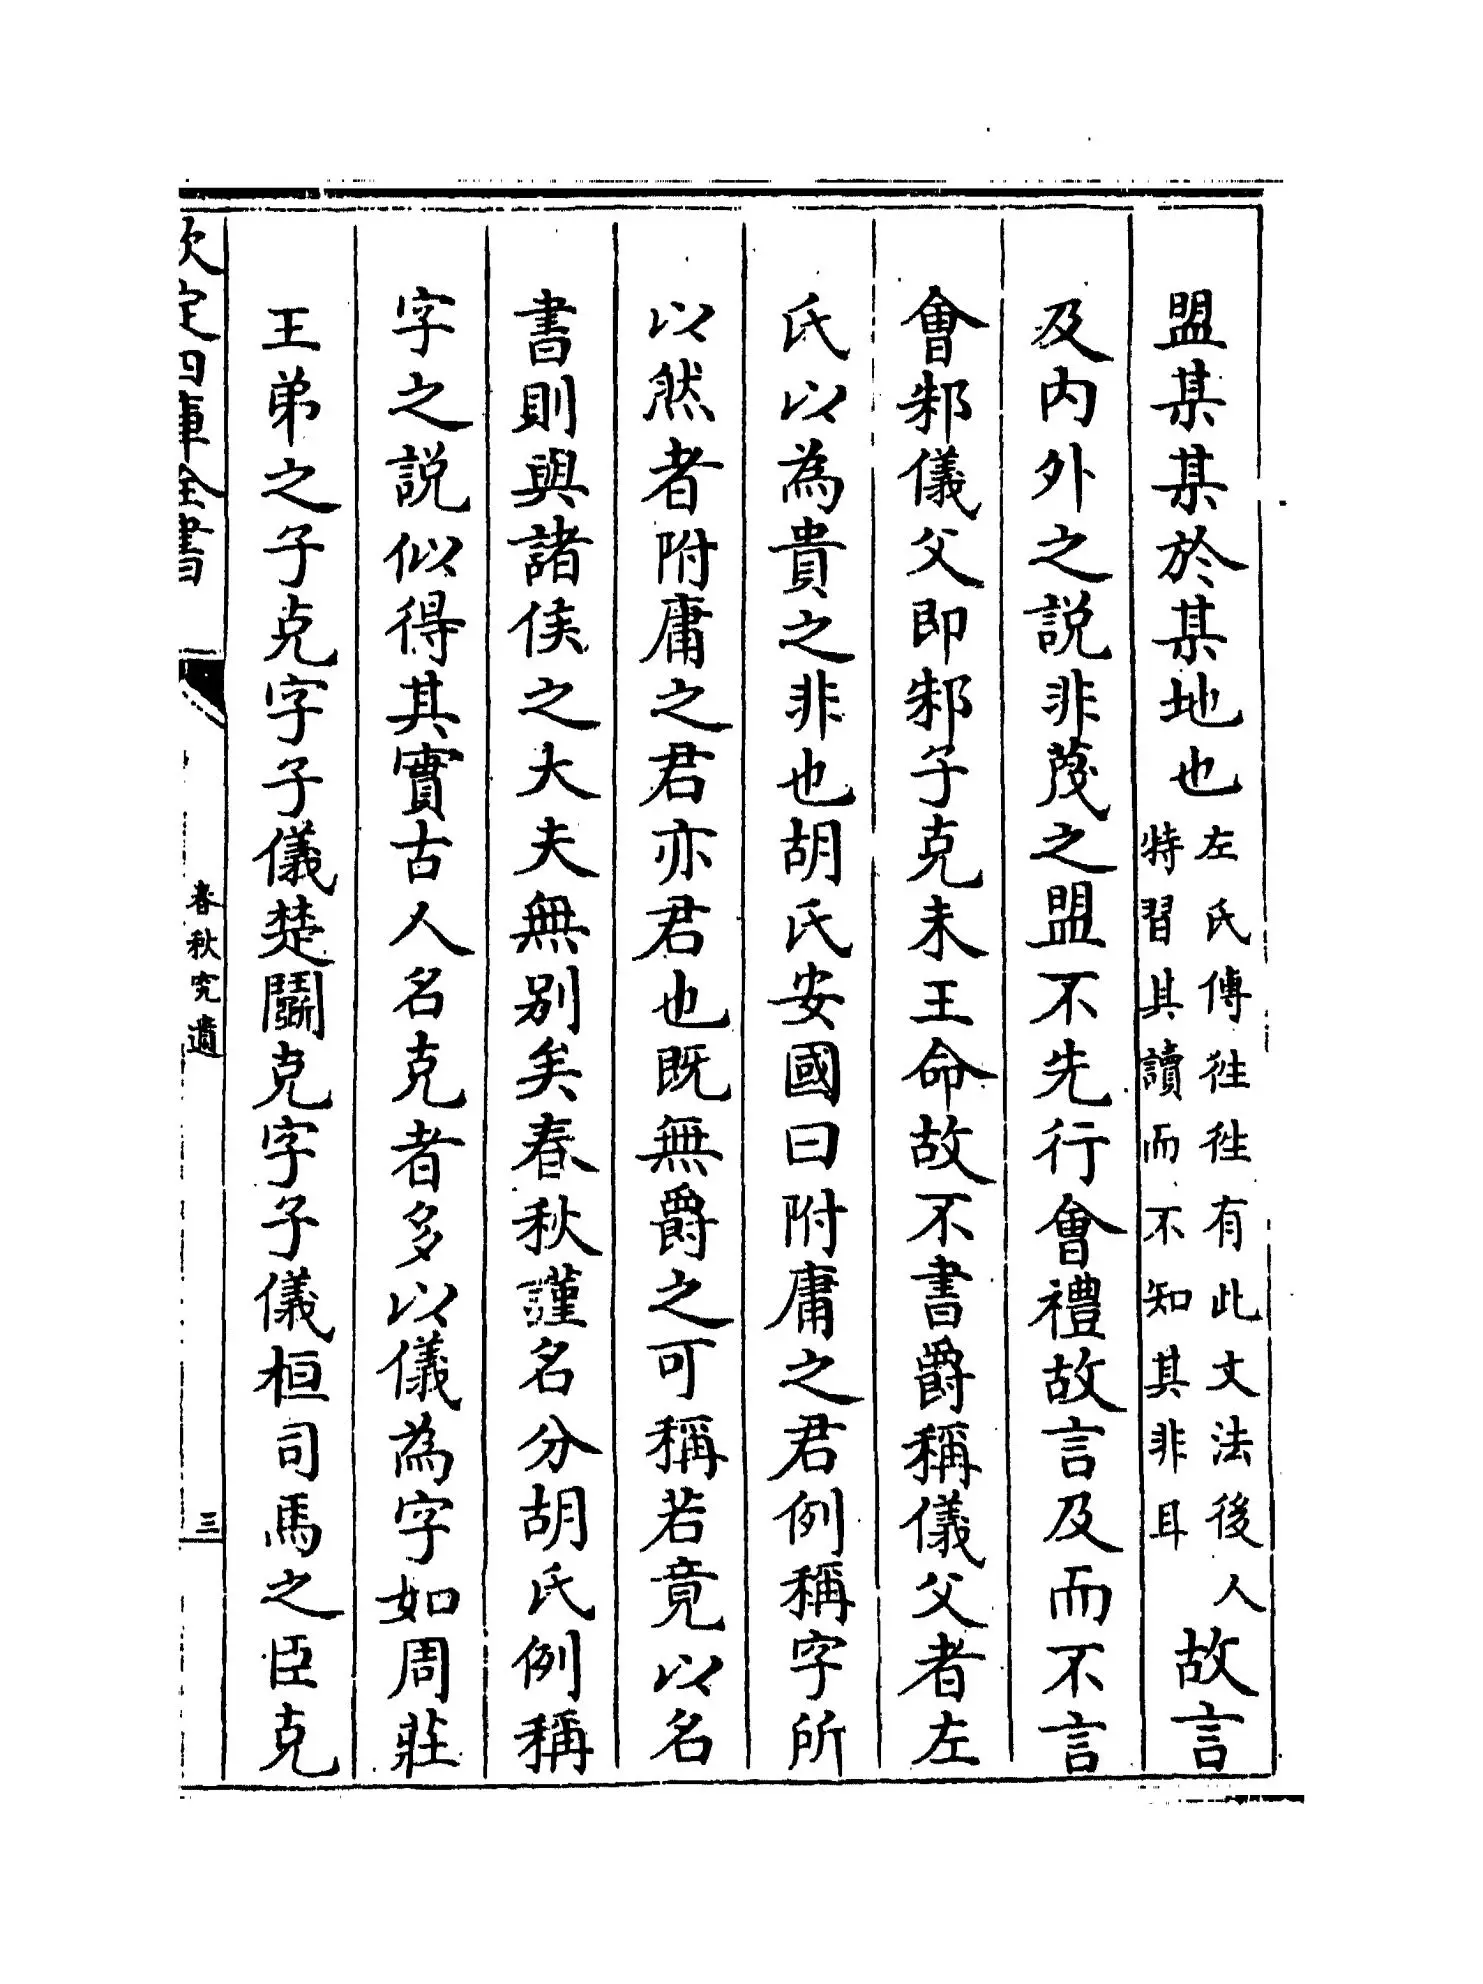 盟某某於某地也左氏傳往往有此文法後人特習其讀而不知其非耳故言
及内外之説非蔑之盟不先行會禮故言及而不言
會邾儀父即邾子克未王命故不書爵稱儀父者左
氏以為貴之非也胡氏安國曰附庸之君例稱字所
以然者附庸之君亦君也既無爵之可稱若竟以名
書則與諸侯之大夫無别矣春秋謹名分胡氏例稱
字之説似得其實古人名克者多以儀為字如周莊
王弟之子克字子儀楚鬬克字子儀桓司馬之臣克
欽定四庫全書
春秋究遺
三